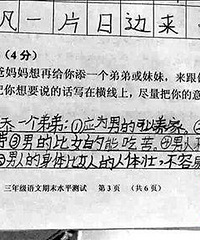 凡一片日边来
(4分)
爸妈妈想再给你添一个弟弟或妹妹,来跟你
把你想要说的话写在横线上,尽量把你的意
添一个弟弟:①应为男的
男的比女的能吃苦。④男人
⑤男人的身体比女人的人体壮,不容易
三年级语文期末水平测试 第3页 (共6页)